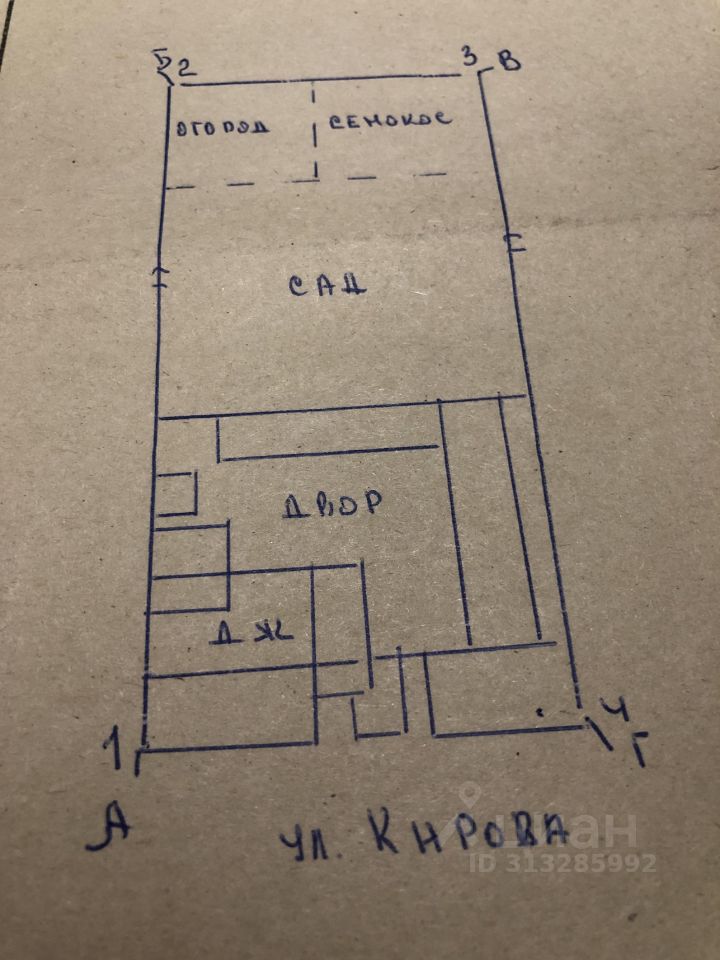 Б 2 3 В
ОГОРОД СЕНОКОС
САД
ДВОР
Д Ж
1 4 Г
А
ул. КИРОВА
циан
ID 313285992